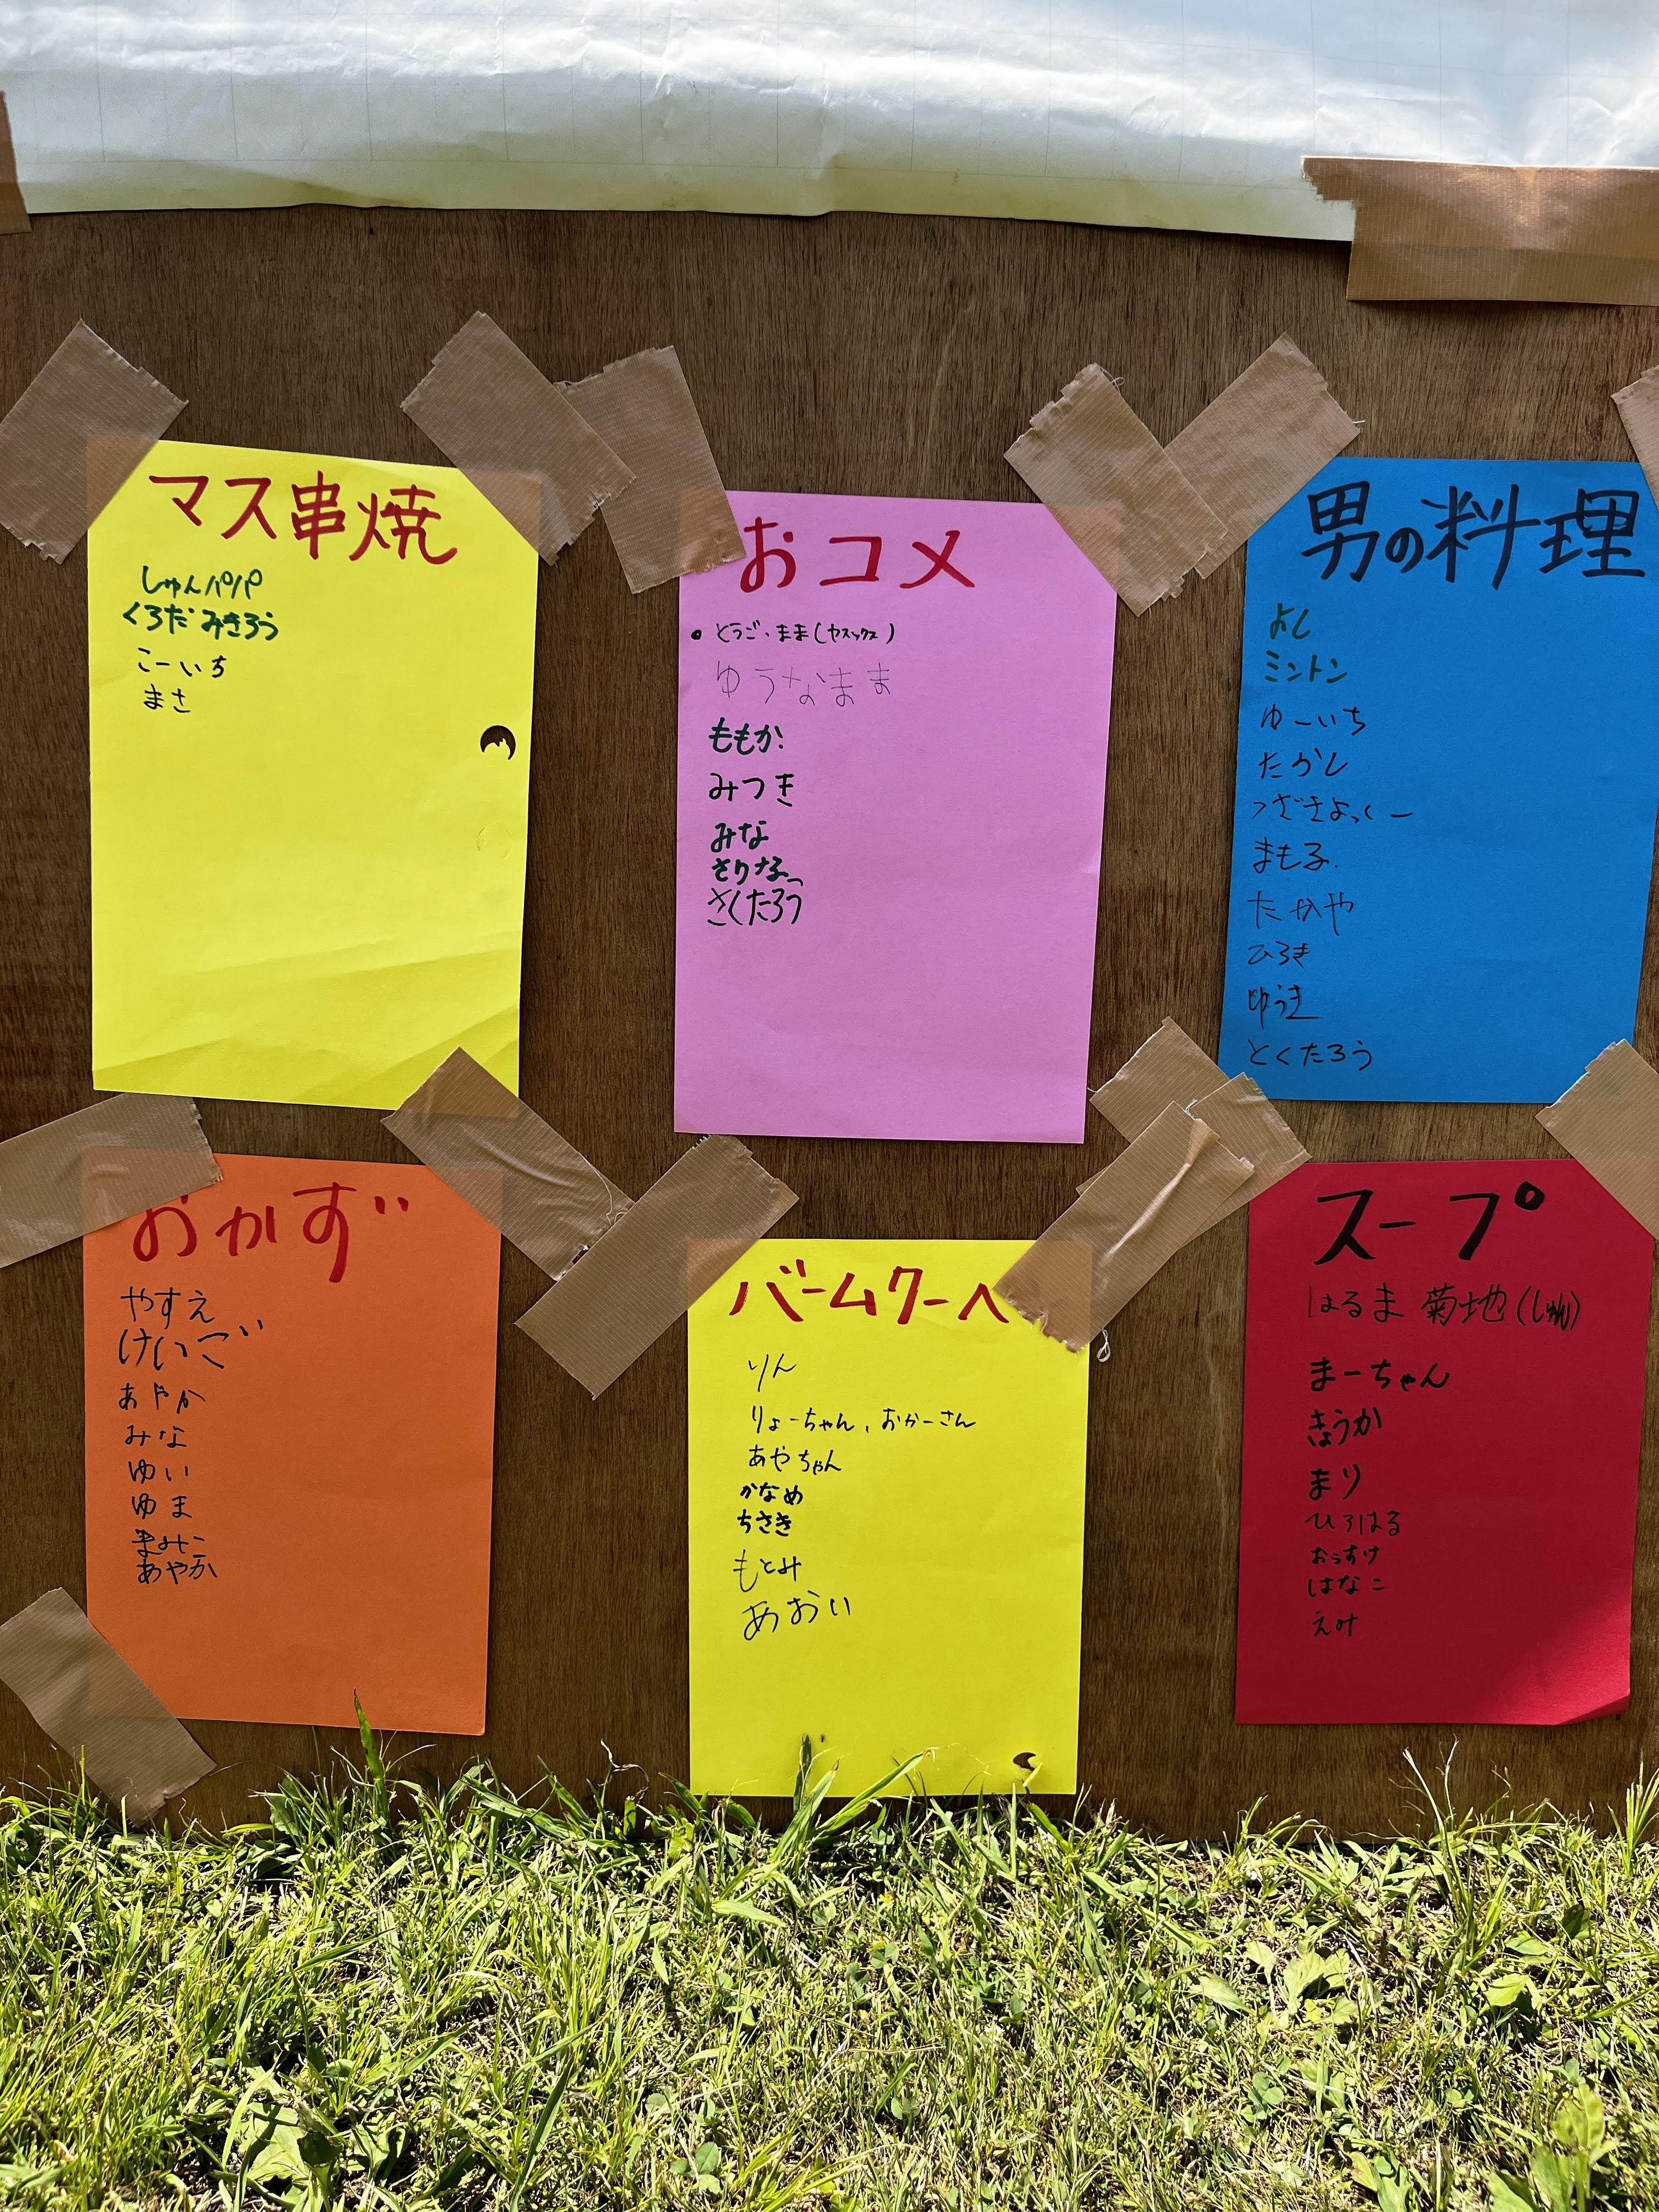 マス串焼
しゅんパパ
くろだみきろう
こーいち
まさ
おコメ
・とうご・まま(ヤスックス)
ゆうなまま
ももか
みつき
みな
さりな
さくたろう
男の料理
よし
ミントン
ゆーいち
たかし
まもる.
たかや
ひろき
ゆうき
とくたろう
おかず
やすえ
けいご
あやか
みな
ゆい
ゆま
まみこ
あやか
バームクーヘ
りん
りょーちゃん、おかーさん
あやちゃん
かなめ
ちさき
もとみ
あおい
スープ
はるま 菊地(しゅん)
まーちゃん
きょうか
まり
ひろはる
おうすけ
はなこ
えみ